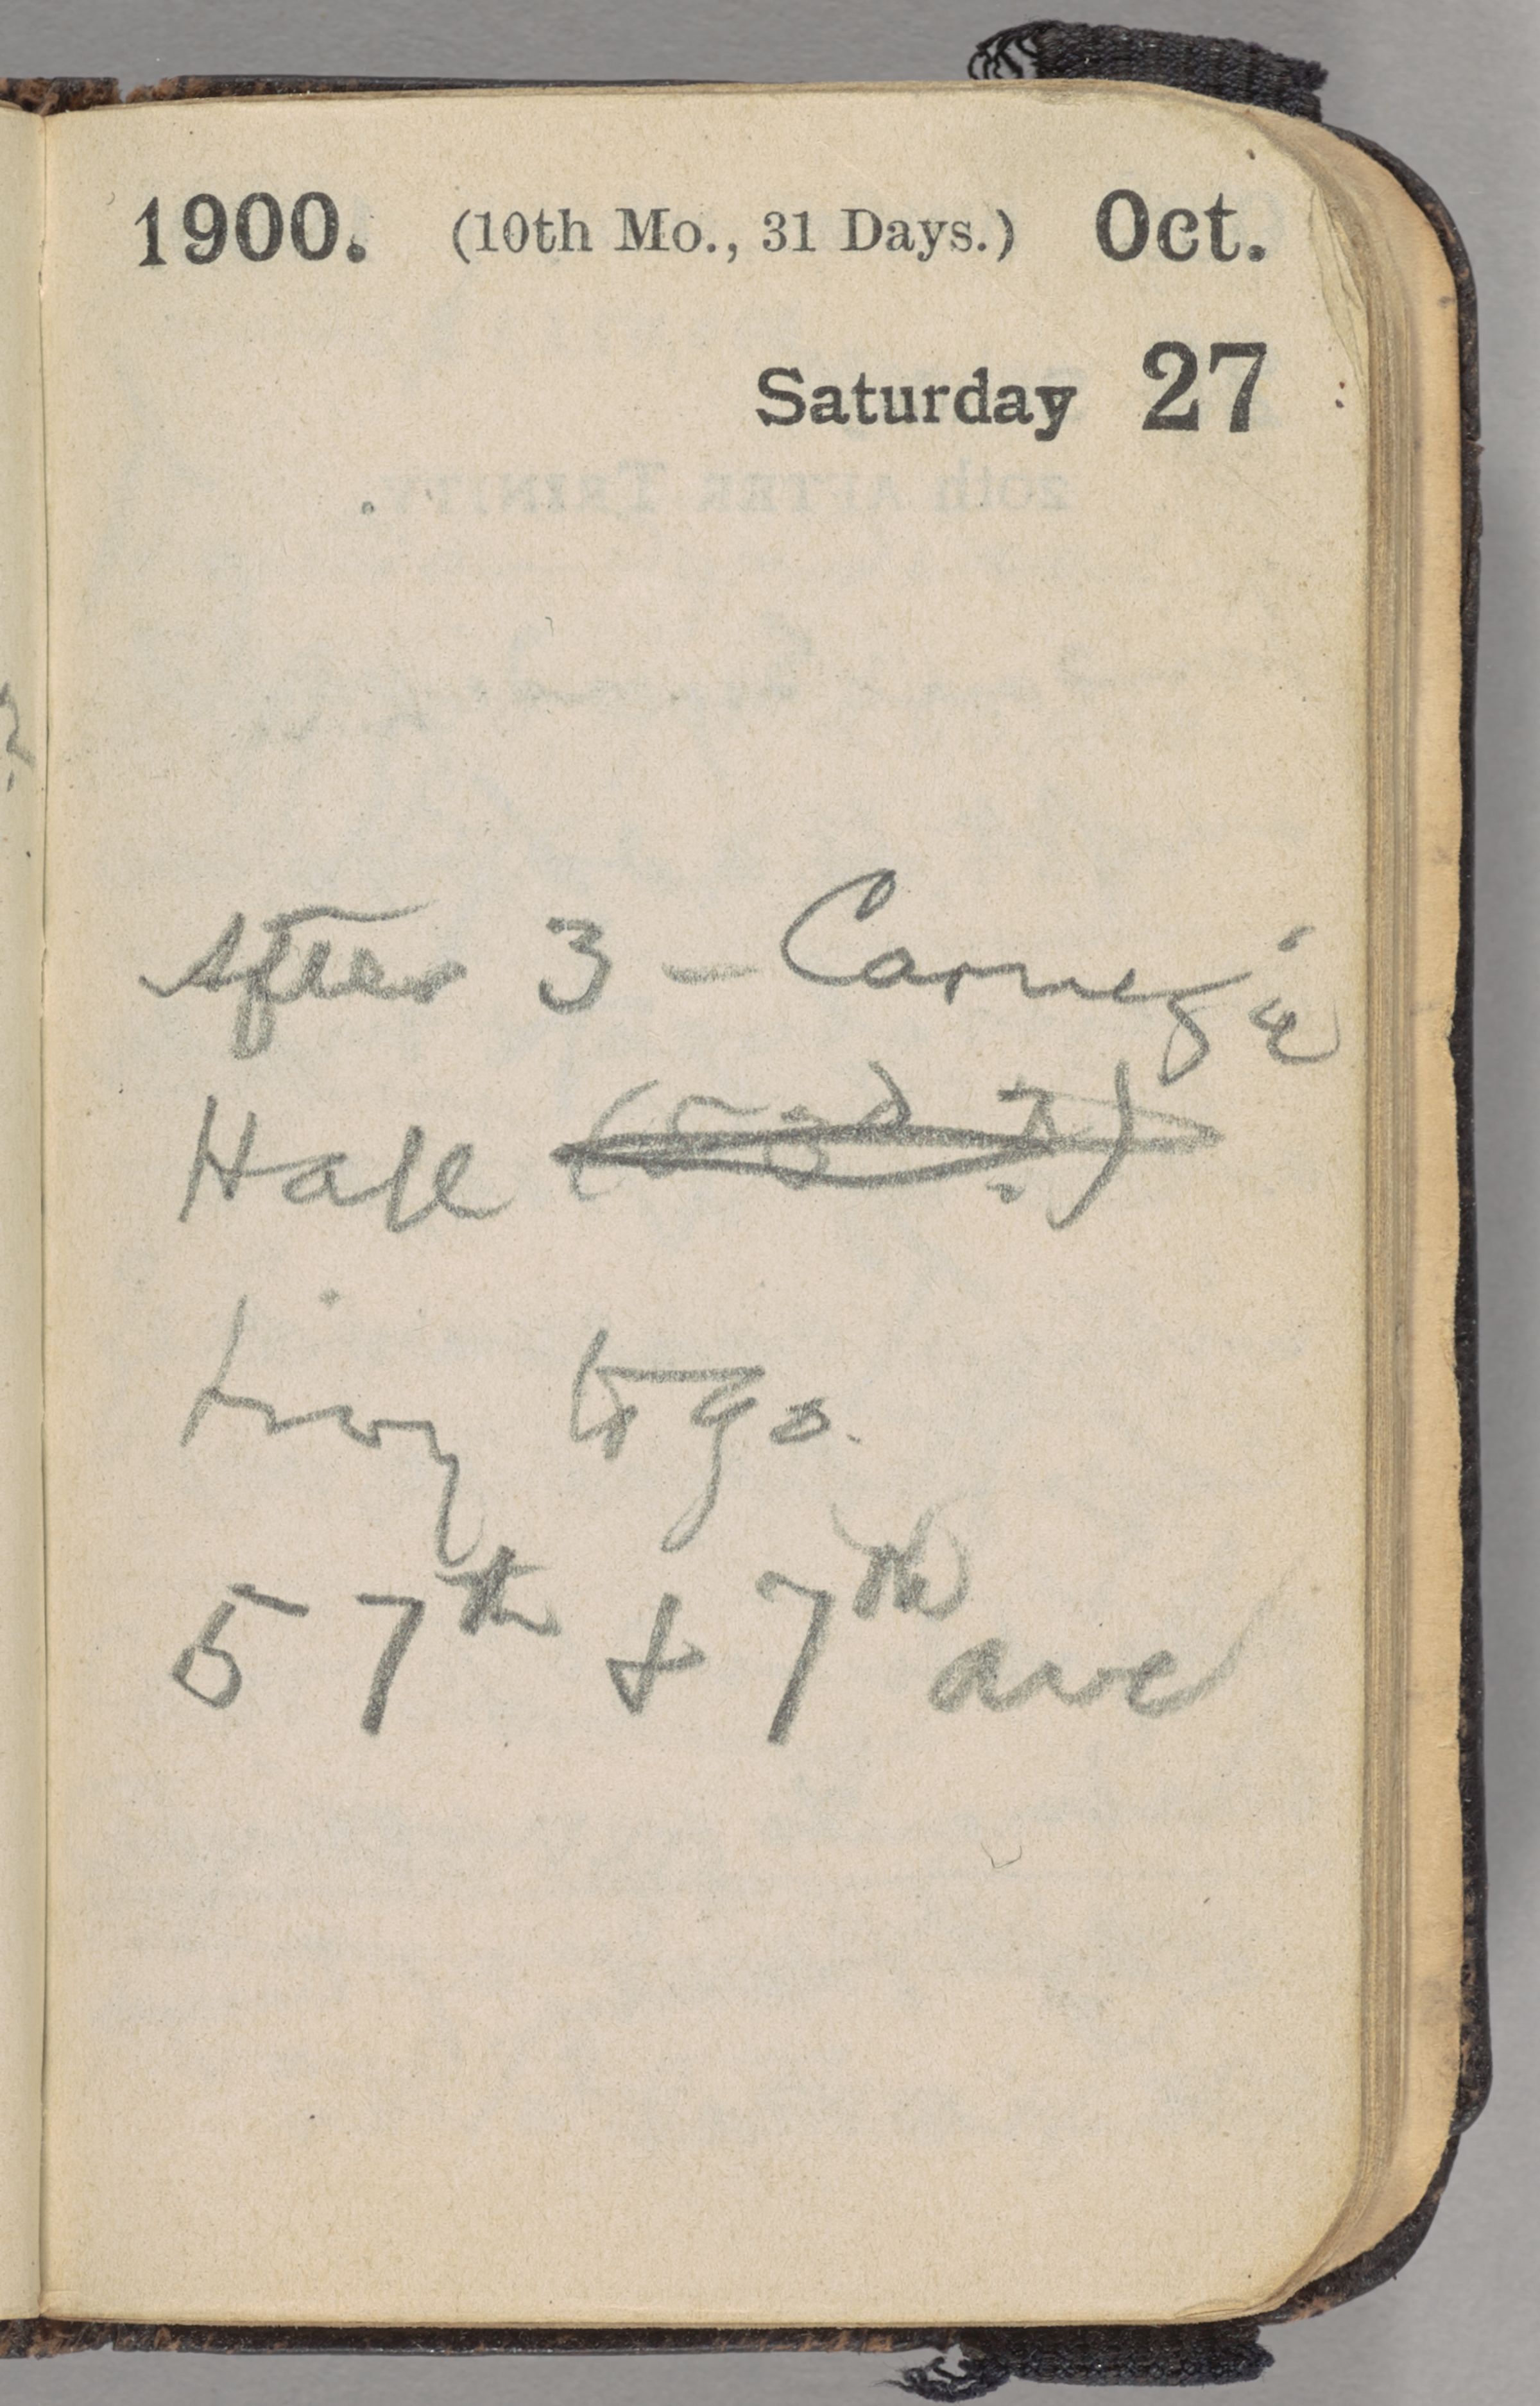 1900. (10th Mo., 31 Days.) Oct.
Saturday 27
After 3 - Carnegie
Hall (53d ?)
to go.
57th & 7th ave